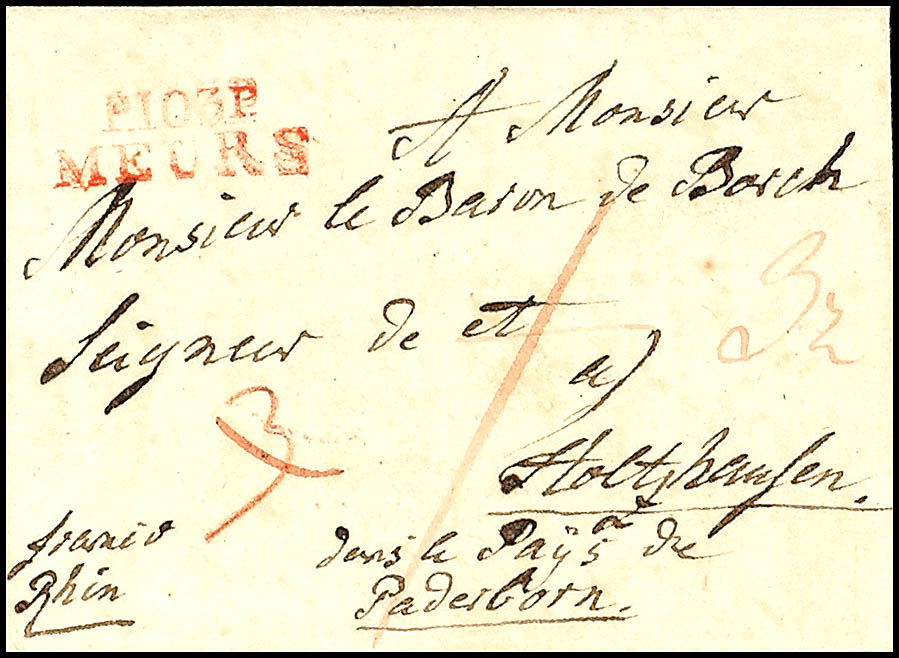 P.103.P.
MEURS
A Monsieur
Monsieur le Baron de Borch
Seigneur de et
a
Holtzhausen.
franco
Rhin
dans le Paÿs de
Paderborn.
3